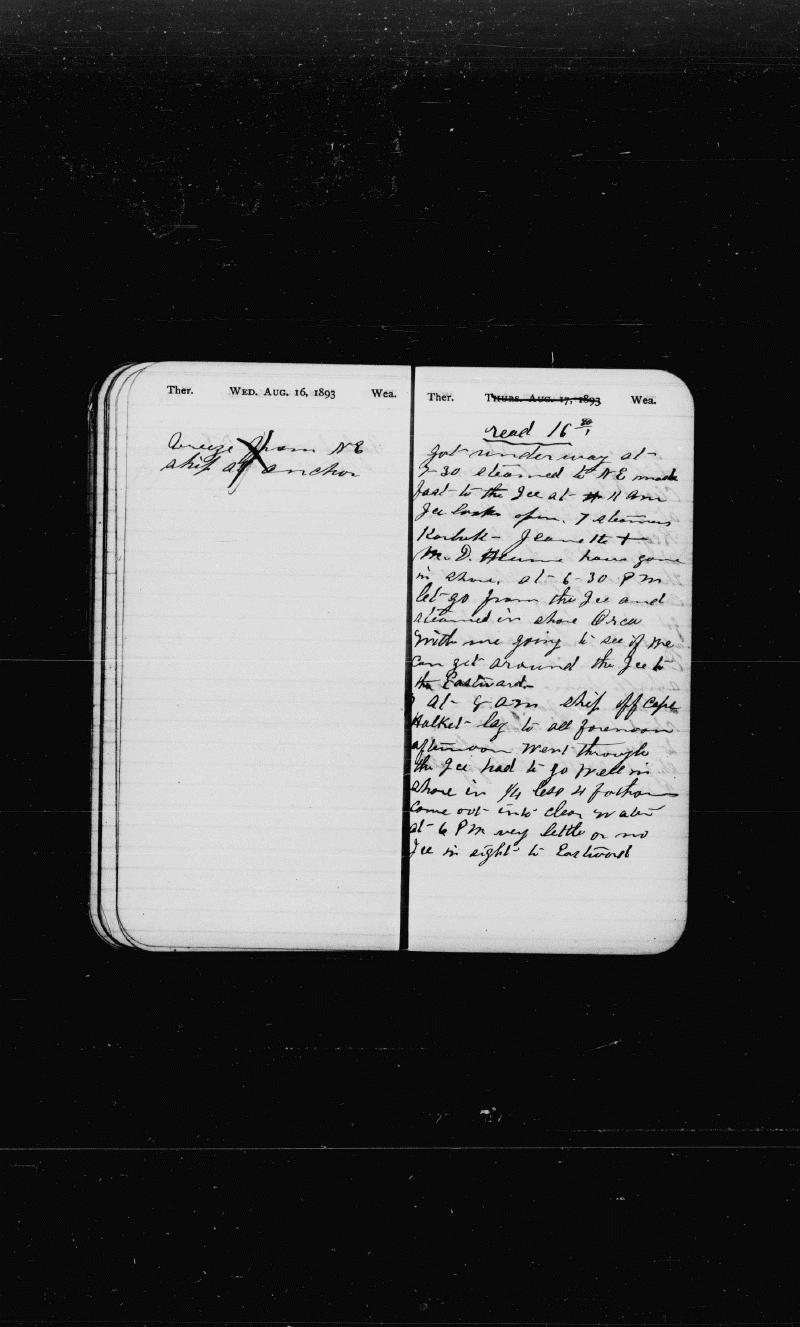 Ther. WED. AUG. 16, 1893 Wea.
breeze from NE
ship at anchor
Ther. THURS. AUG. 17, 1893 Wea.
read 16
got under way at
30 steamed to NE made
fast to the Ice at 11 am
Ice looks open. 7 steamers
Karluk - Jeanette +
M. D. Hume have gone
in shore. at 6-30 PM
let go from the Ice and
steamed in shore Orca
with me going to see if we
can get around the Ice to
the Eastward.
at 8 am ship off Cape
Halket lay to all forenoon
afternoon went through
the Ice had to go well in
shore in 1/4 less 4 fathoms
come out into clear water
at 6 PM very little or no
Ice in sight to Eastward